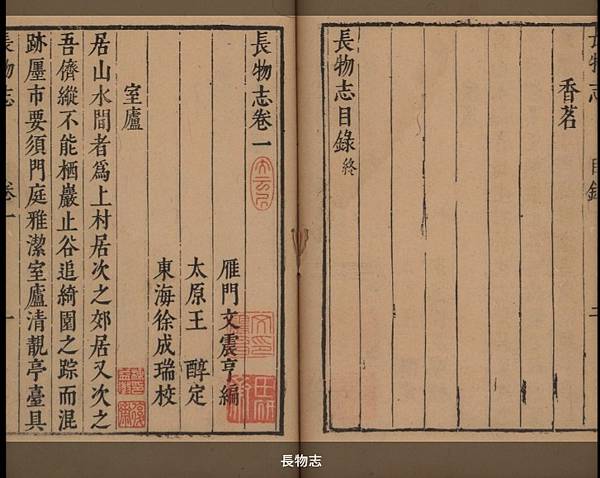 香茗
長物志目錄終
長物志卷一
雁門文震亨編
太原王醇定
東海徐成瑞校
室廬
居山水間者爲上村居次之郊居又次之
吾儕縱不能栖巖止谷追綺園之踪而混
跡廛市要須門庭雅潔室廬清靚亭臺具
長物志
卷一
一
長物志